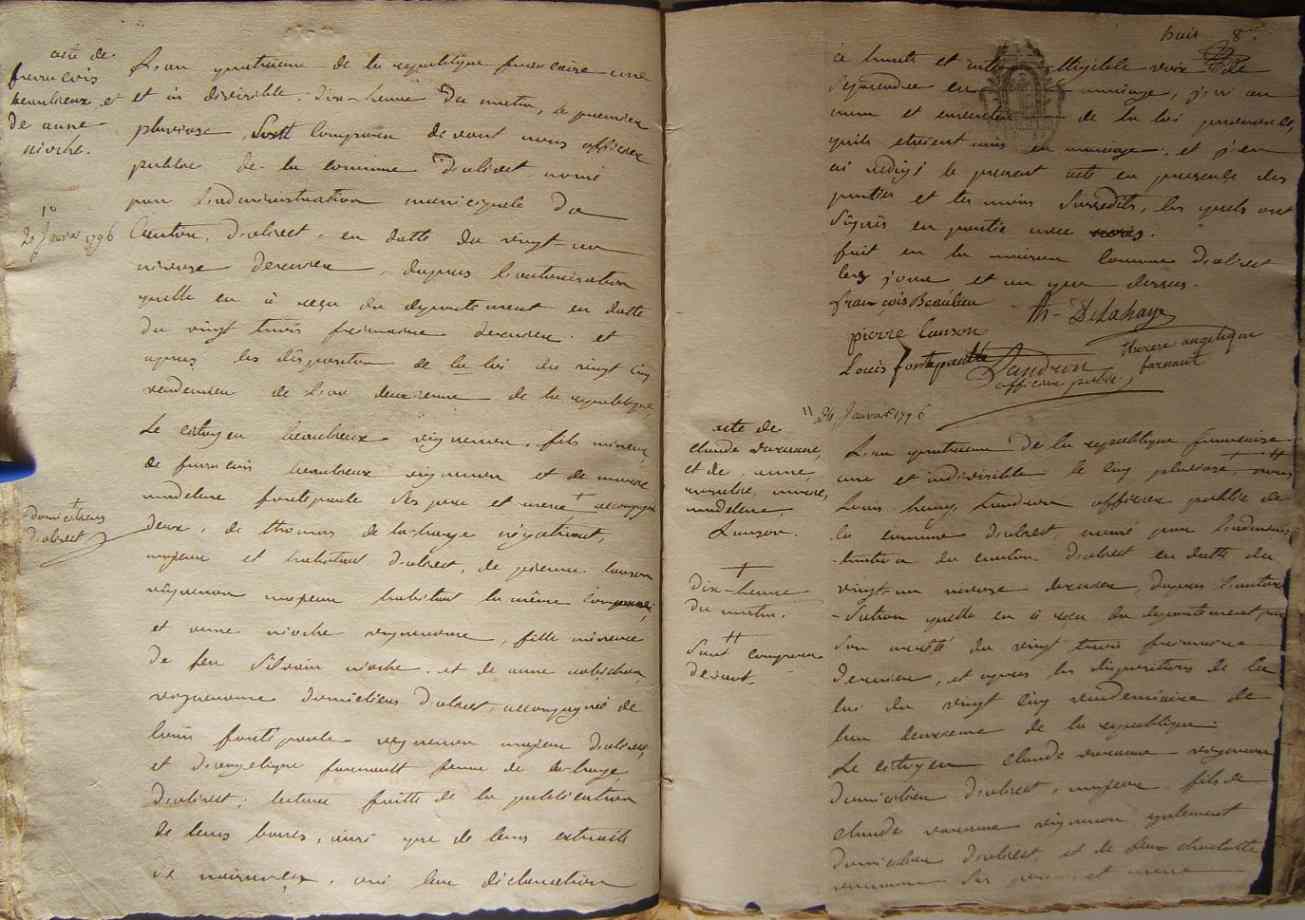 acte de
francois
beaulieux et
de anne
nioche.
10
20 Janvier 1796
L'an quatrieme de la republique francaise une
et in divisible, dix-heure du matin, le premier
pluviose, Sont Comparu devant nous officier
publec de la commune d'olivet nomé
par l'administration municipale du
Canton d'olivet, en datte du vingt un
nivose dernier, dapres l'autorisation
quelle en à reçu du departement en datte
du vingt trois frimaire dernier et
apres les disposition de la loi du vingt cinq
vendemier de l'an deuxieme de la republique,
Le citoyen beaulieux vigneron, fils mineur,
de francois beaulieux vigneron et de marie
madeleine fontepaulle Ses pere et mere accompagné
+
domicilieres
d'olivet
deux, de thomas de la-haye négotiant,
majeur et habitant d'olivet, de pierre lanson
vigneron majeur habitant la même commune,
et anne nioche vigneronne, fille mineure
de feu Silvain nioche et de anne
vigneronne domicilieres d'olivet, accompagnié de
louis fontepaulle vigneron majeur d'olivet,
et d'angelique farnault femme de la-haye,
d'olivet; lecture faitte de la publication
de leurs bans, ainsi que de leurs extraits
de naissances, oui leur déclaration
huit 8
à haute et intelligible voix de
se prendre en mariage, j'ai au
nom et de la loi prononcé
quils etoient unis en mariage, et j'en
ai redigé le present acte en presence des
parties et te moins Susdits, les quels ont
Signés en partie avec nous.
fait en la maison Commune d'olivet
les jour et an que dessus.
françois Beaulieu
th- Delahaye
pierre Lanson
therese angelique
farnault
Louis fontepaulle
Landron
officier public
11 24 Janvier 1796
acte de
claude
et de anne
marie,
madeleine
Lanson.
+
dix-heure
du matin.
++
Sont comparu
devant
L'an quatrieme de la republique francaise
une et indivisible le cinq pluviose + ++ nous
Louis henry Landron officier publie de
la commune d'olivet, nomé par l'adminis
tration du canton d'olivet en datte du
vingt-un nivose dernier, dapres l'autori
-sation quelle en à reçu du departement par
Son areté du vingt trois frimaire
dernier, et apres les dispositions de la
loi du vingt cinq vendemiaire de
l'an deuxieme de la republique.
Le citoyen claude vigneron
domicilier d'olivet, majeur fils de
claude vigneron egalement
domicilier d'olivet et de feue charlotte
Ses pere et mere